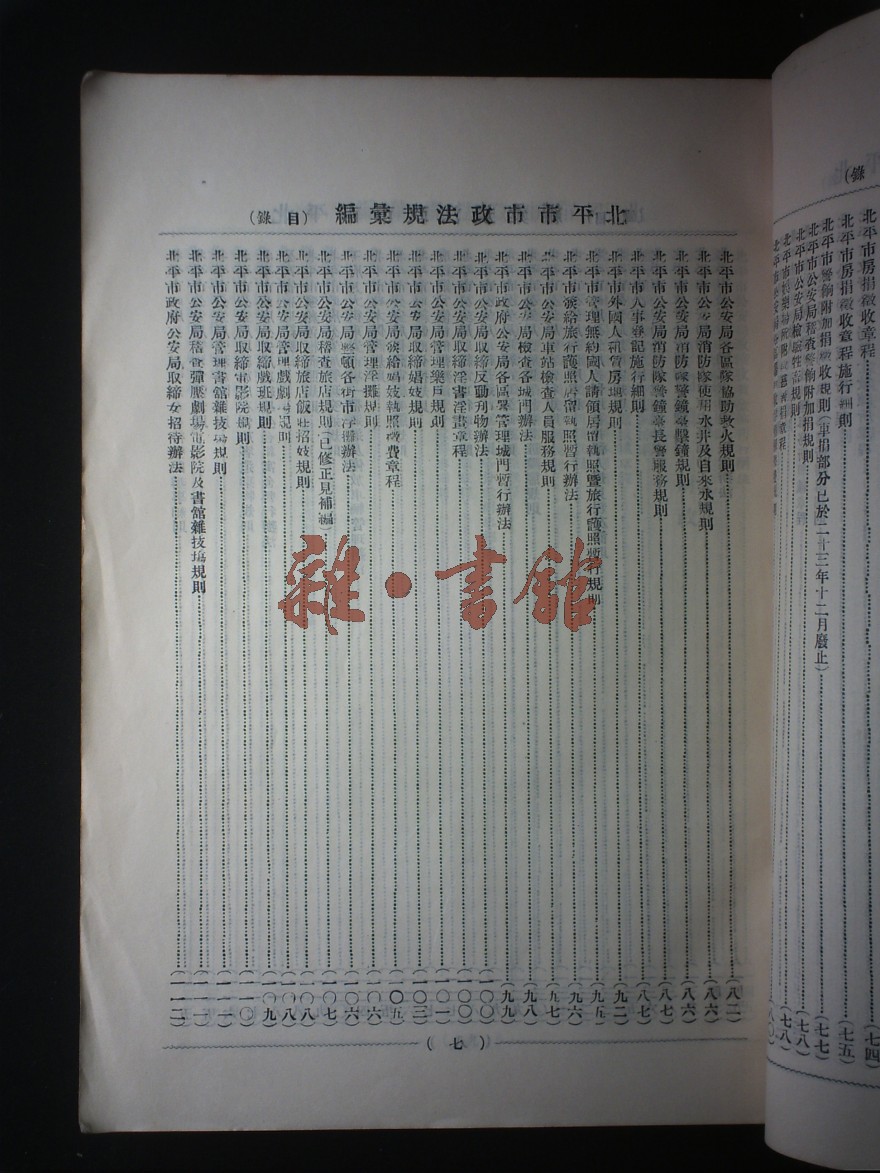 北平市市政法規彙編（目錄）
北平市公安局各區隊協助救火規則（八二）
北平市公安局消防隊使用水井及自來水規則（八六）
北平市公安局消防隊警鐘臺擊鐘規則（八六）
北平市公安局消防隊警鐘臺長警服務規則（八七）
北平市人事登記施行細則（八七）
北平市外國人租賃房地規則（九二）
北平市管理無約國人請領居留執照暨旅行護照暫行規則（九五）
北平市發給旅行護照居留執照暫行辦法（九六）
北平市公安局車站檢查人員服務規則（九七）
北平市公安局檢查各城門辦法（九八）
北平市政府公安局各區署管理城門暫行辦法（九九）
北平市公安局取締反動刊物辦法（一〇〇）
北平市公安局取締淫書淫畫章程（一〇〇）
北平市公安局管理樂戶規則（一〇一）
北平市公安局取締娼妓規則（一〇三）
北平市公安局發給娼妓執照徵費章程（一〇五）
北平市公安局管理浮攤規則（一〇六）
北平市公安局整頓各街市浮攤辦法（一〇六）
北平市公安局稽查旅店規則（已修正見補編）（一〇七）
北平市公安局取締旅店飯莊招妓規則（一〇八）
北平市公安局管理戲劇規則（一〇八）
北平市公安局取締戲班規則（一〇九）
北平市公安局取締電影院規則（一一〇）
北平市公安局管理書館雜技場規則（一一一）
北平市公安局稽查彈壓劇場電影院及書館雜技場規則（一一一）
北平市政府公安局取締女招待辦法（一一二）
（七）
雜·書館
錄）
北平市房捐徵收章程（七四）
北平市房捐徵收章程施行細則（七五）
北平市警餉附加捐徵收規則（車捐部分已於二十三年十二月廢止）（七七）
北平市公安局稽查警餉附加捐規則（七八）